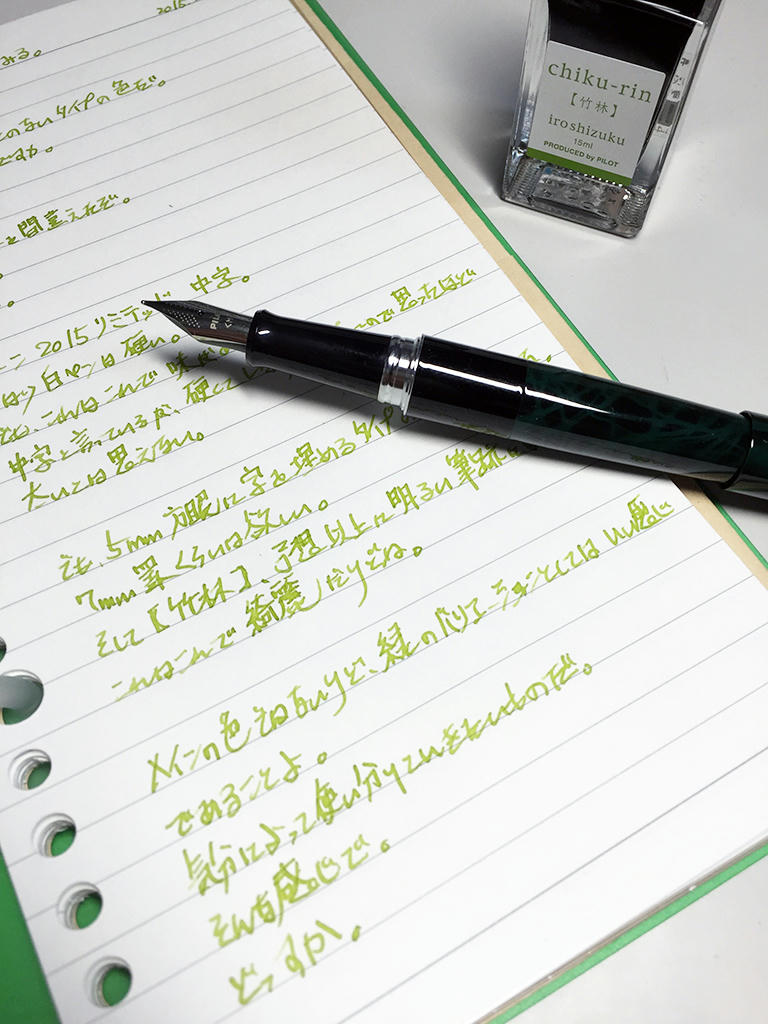 2015.
みる。
とのないタイプの色だ。
ですか。
と間違えたぞ。
ーン 2015 リミテッド 中字。
白ペンは硬い。 ので思ったほど
これはこれで味
中字と言っているが、硬くて
太いとは思えない。
でも、5mm方眼に字を埋めるタイプ
7mm罫くらいは欲しい。
そして【竹林】、予想以上に明るい筆跡
これはこれで綺麗だけどね。
メインの色ではないけど、緑のバリエーションとしてはいい感じ
であることよ。
気分によって使い分けていきたいものだ。
そんな感じで。
どっすか。
chiku-rin
【竹林】
iroshizuku
15ml
PRODUCED by PILOT